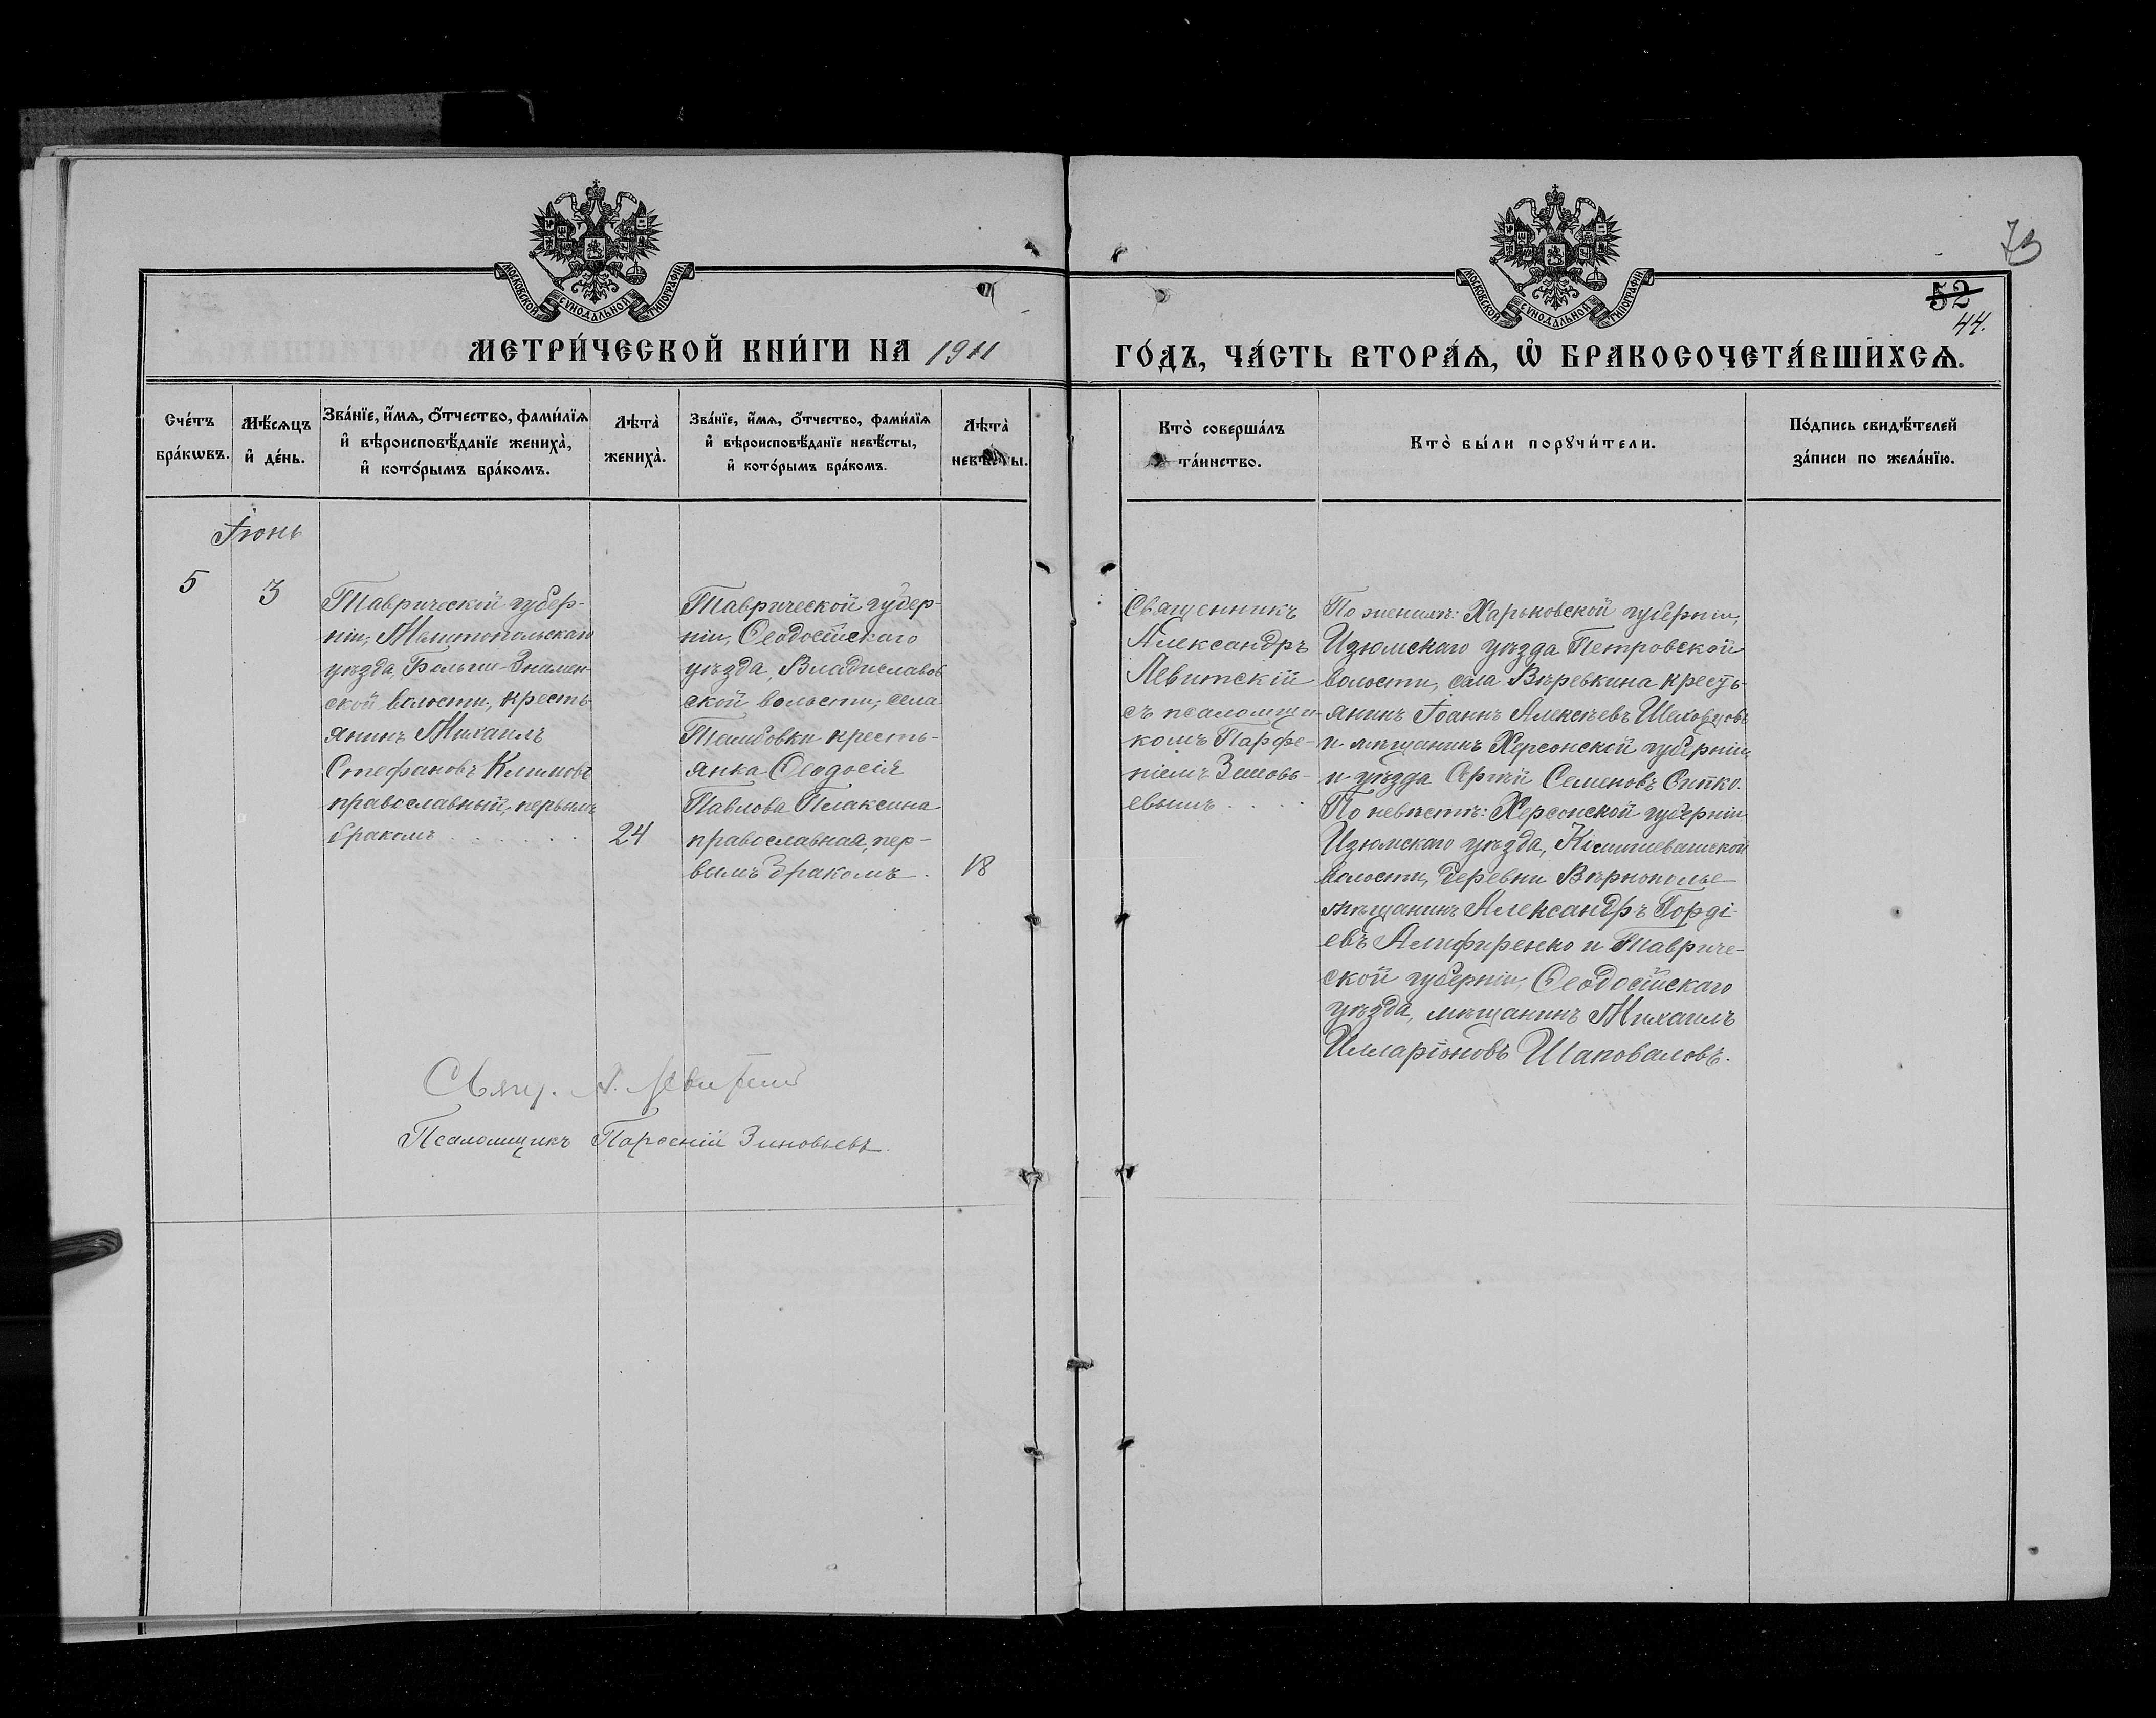 73
МОСКОВСКОЙ СѴНОДАЛЬНОЙ ТИПОГРАФІИ
МОСКОВСКОЙ СѴНОДАЛЬНОЙ ТИПОГРАФІИ
52
44.
МЕТРИ́ЧЕСКОЙ КНИ́ГИ НА 1911
ГО́ДЪ, ЧА́СТЬ ВТОРА́Ѧ, Ѡ҆ БРАКОСОЧЕТА́ВШИХСѦ.
Сче́тъ
бра́кѡвъ.
Мѣ́сѧцъ
и҆ де́нь.
Зва́нїе, и҆́мѧ, ѻ҆́тчество, фами́лїѧ
и҆ вѣроисповѣ́данїе жениха̀,
и҆ кото́рымъ бра́комъ.
Лѣта̀
жениха̀.
Зва́нїе, и҆́мѧ, ѻ҆́тчество, фами́лїѧ
и҆ вѣроисповѣ́данїе невѣ́сты,
и҆ кото́рымъ бра́комъ.
Лѣта̀
невѣ́сты.
Кто̀ соверша́лъ
та́инство.
Кто̀ бы́ли порꙋчи́тели.
По́дпись свидѣ́телей
за́писи по жела́нїю.
Іюнь
5
3
Таврической губер-
ніи, Мелитопольскаго
уѣзда, Больше-Знамен-
ской волости, кресть-
янинъ Михаилъ
Стефановъ Климовъ
православный, первымъ
бракомъ . . . . . . .
24
Таврической губер-
ніи, Ѳеодосійскаго
уѣзда, Владиславов
ской волости, села
Тамбовки кресть-
янка Ѳеодосія
Павлова Плаксина
православная, пер-
вымъ бракомъ .
18
Священникъ
Александръ
Левитскій
съ псаломщи-
комъ Парфе-
ніемъ Зиновь-
евымъ . . . .
По женихѣ: Харьковской губерніи,
Изюмскаго уѣзда Петровской
волости, села Вѣревкина кресть-
янинъ Іоаннъ Алексѣевъ Шеховцовъ
и мѣщанинъ Херсонской губерніи,
и уѣзда Сергѣй Семеновъ Ситко.
По невѣстѣ: Херсонской губерніи
Изюмскаго уѣзда,
волости, деревни Вѣрнополье
мѣщанинъ Александръ Горді-
евъ Алифиренко и Тавриче-
ской губерніи, Ѳеодосійскаго
уѣзда, мѣщанинъ Михаилъ
Илларіоновъ Шаповаловъ.
Свящ. А. Левитскій
Псаломщикъ Парѳеній Зиновьевъ.